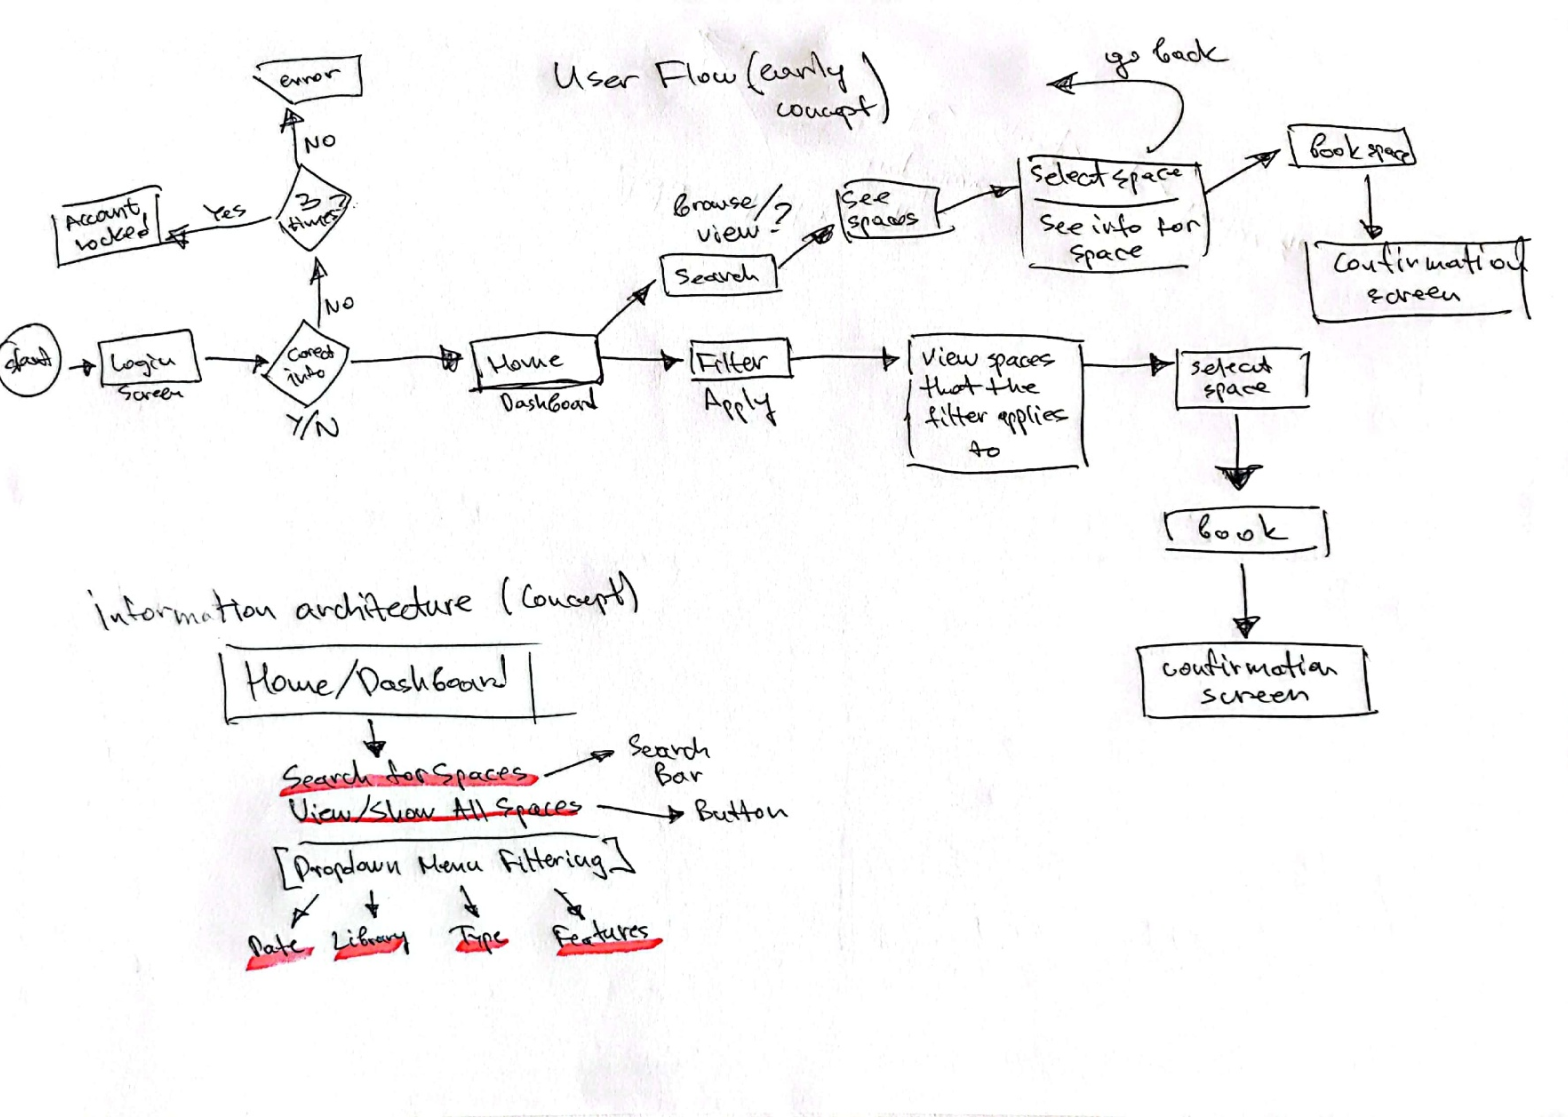 User Flow (early
concept)
go back
error
NO
3
times?
Yes
Account
locked
NO
start
Login
Screen
Correct
info
Y/N
Home
Dashboard
Browse/
view?
Search
See
spaces
Select space
See info for
space
Book space
Confirmation
screen
Filter
Apply
View spaces
that the
filter applies
to
select
space
book
confirmation
screen
information architecture (concept)
Home/Dashboard
Search for Spaces
Search
Bar
View/Show All Spaces
Button
[Dropdown Menu Filtering]
Date Library Type Features